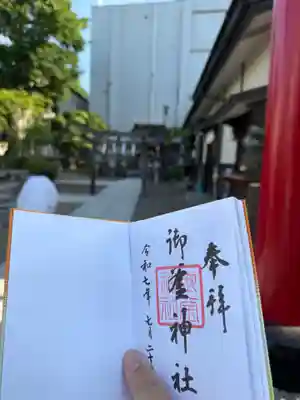 奉拝
御釜神社
令和七年七月二